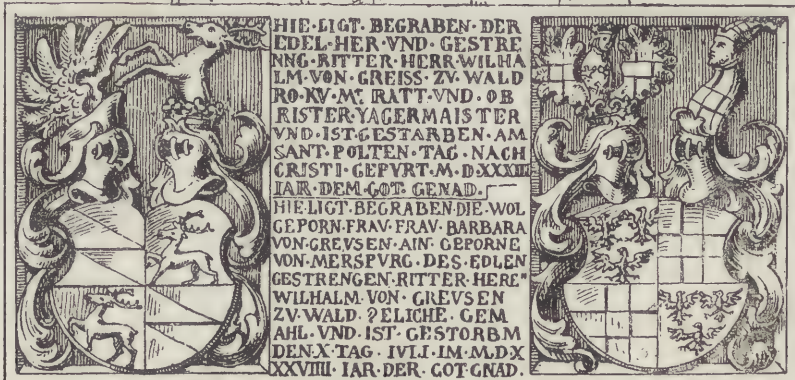 HIE·LIGT·BEGRABEN·DER
EDEL·HER·VND·GESTRE
NNG·RITTER·HERR·WILHA
LM·VON·GREISS·ZV·WALD
RO·KV·MT·RATT·VND·OB
RISTER·YAGERMAISTER
VND·IST·GESTARBEN·AM
SANT·POLTEN·TAG·NACH
CRISTI·GEPVRT·M·D·XXXIIII
IAR·DEM·GOT·GENAD·
HIE·LIGT·BEGRABEN·DIE·WOL
GEPORN·FRAV·FRAV·BARBARA
VON·GREVSEN·AIN·GEPORNE
VON·MERSPVRG·DES·EDLEN
GESTRENGEN·RITTER·HERE"
WILHALM·VON·GREVSEN
ZV·WALD·?ELICHE·GEM
AHL·VND·IST·GESTORBM
DEN·X·TAG·IVLI·IM·M·D·X
XXVIIII·IAR·DER·GOT·GNAD·